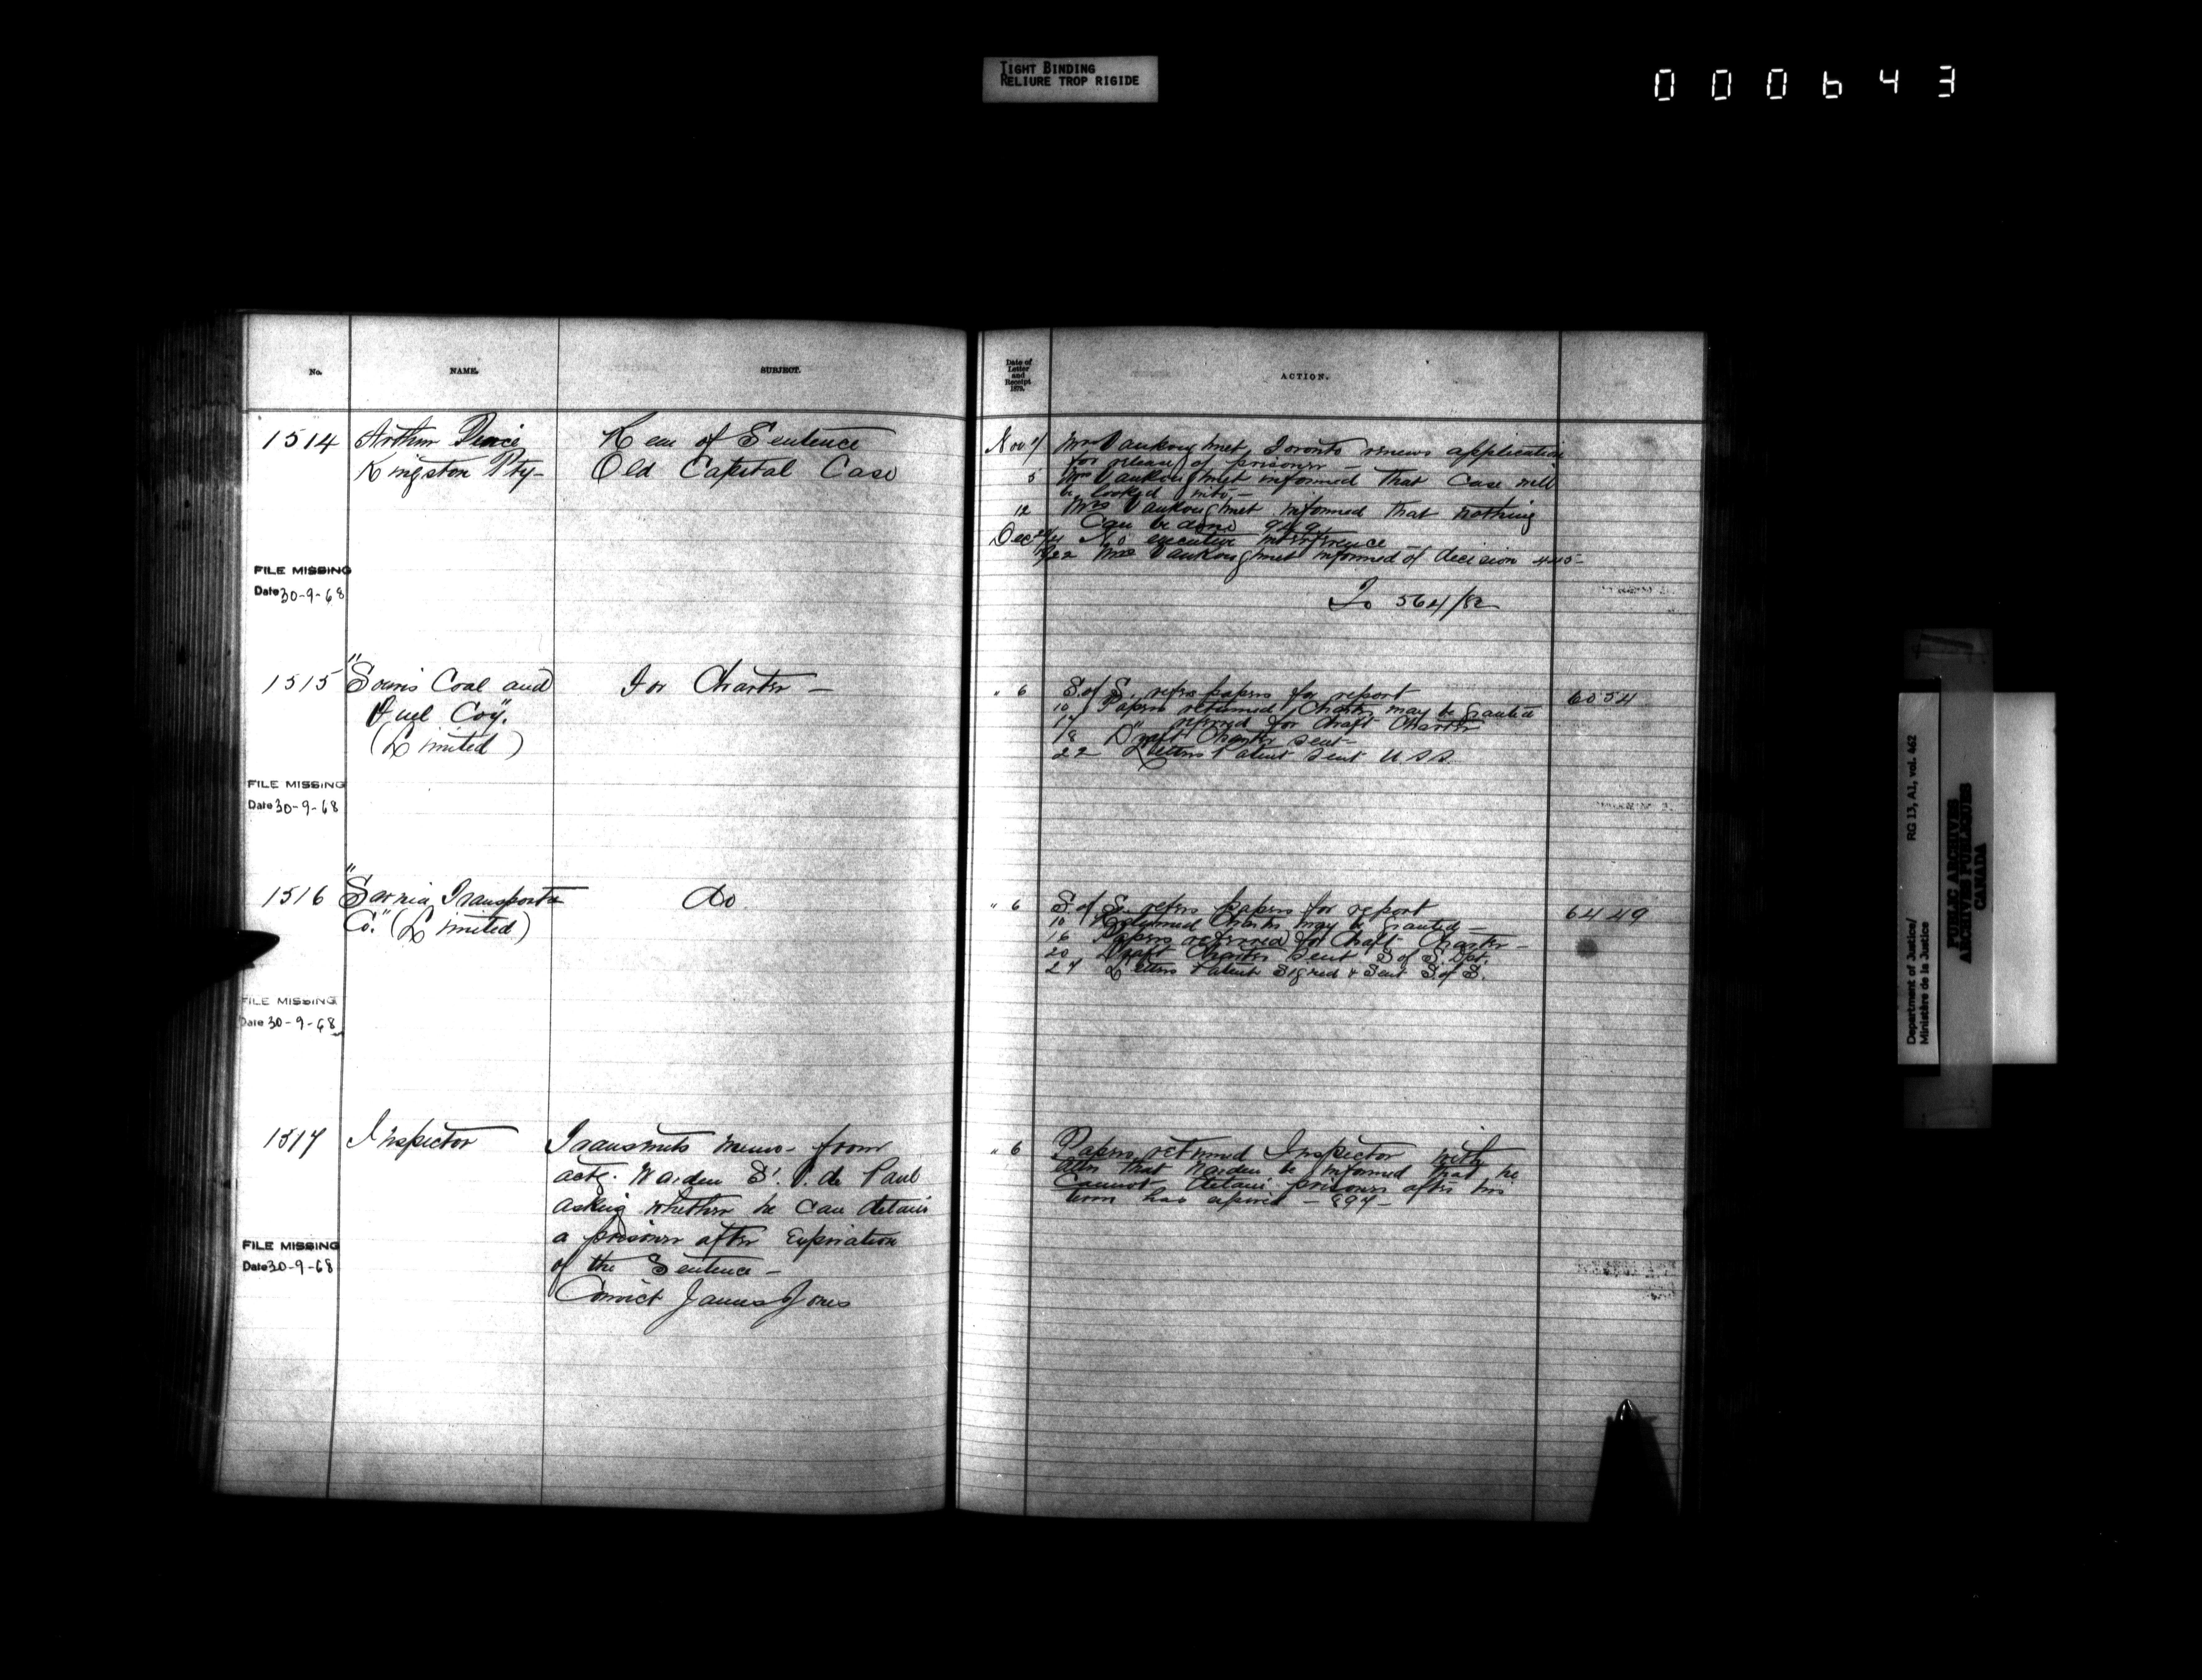 TIGHT BINDING
RELIURE TROP RIGIDE
000643
No.
NAME.
SUBJECT.
1514
Arthur
Kingston Pty-
Rem of Sentence
Old Capital Case
FILE MISSING
Date 30-9-68
1515
"Souris Coal and
Fuel Coy."
(Limited)
For Charter -
FILE MISSING
Date 30-9-68
1516
"Sarnia Transportn
Co." (Limited)
Do
FILE MISSING
Date 30-9-68
1517
Inspector
Transmits memo- from
actg. Warden St. V. de Paul
asking whether he can detain
a prisoner after Expiration
of the Sentence -
Convict James Jones
FILE MISSING
Date 30-9-68
Date of
Letter
and
Receipt
187 .
ACTION.
Nov
Mrs Vankoughnet, Toronto renews application
for release of prisoner -
5 Mrs Vankoughnet informed that Case will
be looked into -
12 Mrs Vankoughnet informed that nothing
Can be done 949
Dec No executive interference -
22 Mrs Vankoughnet informed of decision
To 564/82
" 6 S. of S. refers papers for report 6054
10 Papers returned, Charter may be granted
17 " referred for draft Charter
18 Draft Charter sent -
22 Letters Patent sent U.S.S.
" 6 S. of S. refers papers for report 6449
10 Returned Charter may be granted -
16 Papers referred for draft Charter -
20 Draft Charter sent S of S. Dpt.
27 Letters Patent signed & sent S. of S.
" 6 Papers returned Inspector with
that Warden be informed that he
Cannot detain prisoner after his
term has expired - 897 -
Department of Justice/ RG 13, A1, vol. 462
Ministère de la Justice
PUBLIC ARCHIVES
ARCHIVES PUBLIQUES
CANADA